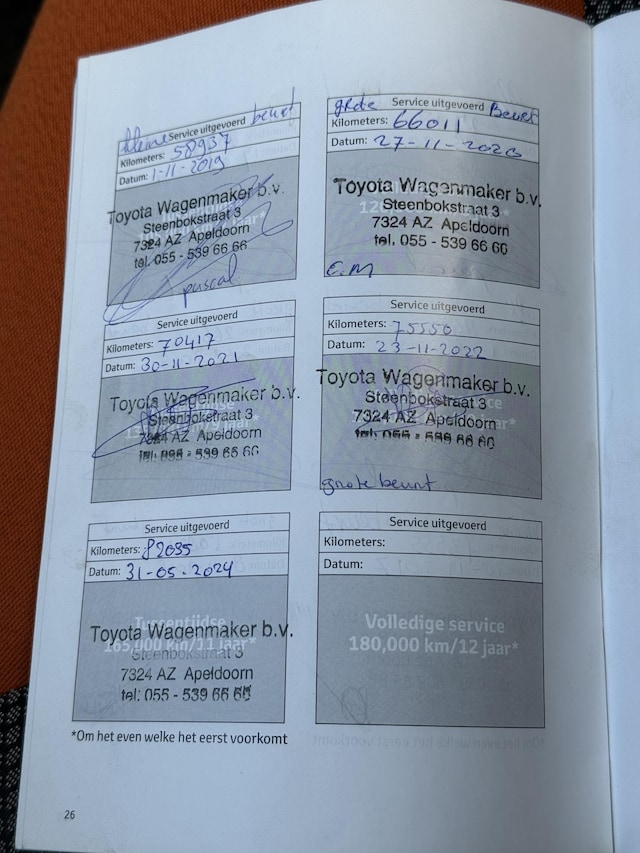 kleine beurt
Service uitgevoerd
Kilometers: 58937
Datum: 1-11-2019
Toyota Wagenmaker b.v.
Steenbokstraat 3
7324 AZ Apeldoorn
tel. 055 - 539 66 66
puscal
grote Service uitgevoerd Beurt
Kilometers: 66011
Datum: 27-11-2020
Toyota Wagenmaker b.v.
Steenbokstraat 3
7324 AZ Apeldoorn
tel. 055 - 539 66 66
E.M
Service uitgevoerd
Kilometers: 70417
Datum: 30-11-2021
Toyota Wagenmaker b.v.
Steenbokstraat 3
7324 AZ Apeldoorn
tel. 055 - 539 66 66
Service uitgevoerd
Kilometers: 75550
Datum: 23-11-2022
Toyota Wagenmaker b.v.
Steenbokstraat 3
7324 AZ Apeldoorn
tel. 055 - 539 66 66
grote beurt
Service uitgevoerd
Kilometers: 82035
Datum: 31-05-2024
Tussentijdse
165,000 km/11 jaar*
Toyota Wagenmaker b.v.
Steenbokstraat 3
7324 AZ Apeldoorn
tel. 055 - 539 66 66
Service uitgevoerd
Kilometers:
Datum:
Volledige service
180,000 km/12 jaar*
*Om het even welke het eerst voorkomt
26